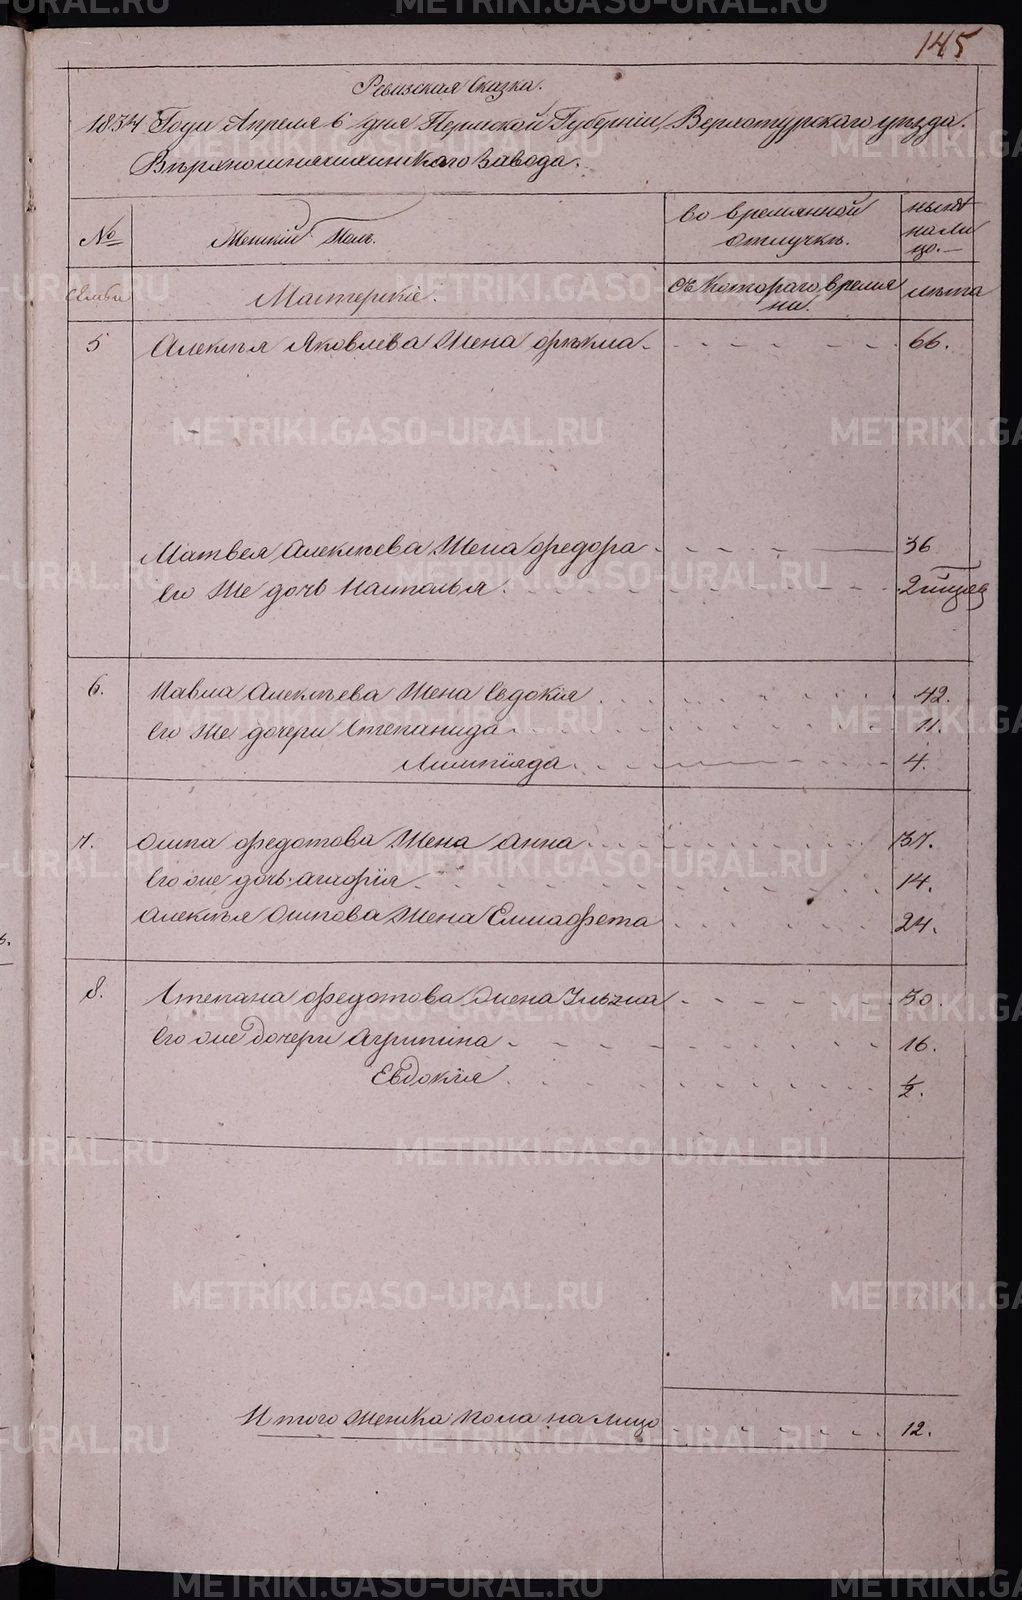 145
Ревизская Сказка.
1834 Года Апреля 6 дня Пермской Губернiи, Верхотурского уезда.
Завода.
№ Женскiй Полъ. во времянной отлучкъ. нынѣ на ли цо.
Семьи Мастерскiе. съ Котораго время ни. лѣта
5 Алексѣя Яковлева Жена Фѣкла 66.
Матвея Алексѣева Жена Федора 36
Его Же дочь Наталья
6. Павла Алексѣева Жена Евдокiя 42.
Его Же дочери Степанида 11.
Лимпiяда 4.
7. Осипа Федотова Жена Анна 37.
Его же дочь Агафiя 14.
Алексѣя Осипова Жена Елисафета 24.
8. Степана Федотова Жена Ульяна 50.
Его же дочери Агрипина 16.
Евдокiя 1/2.
Итого Женска пола на лицо 12.
METRIKI.GASO-URAL.RU